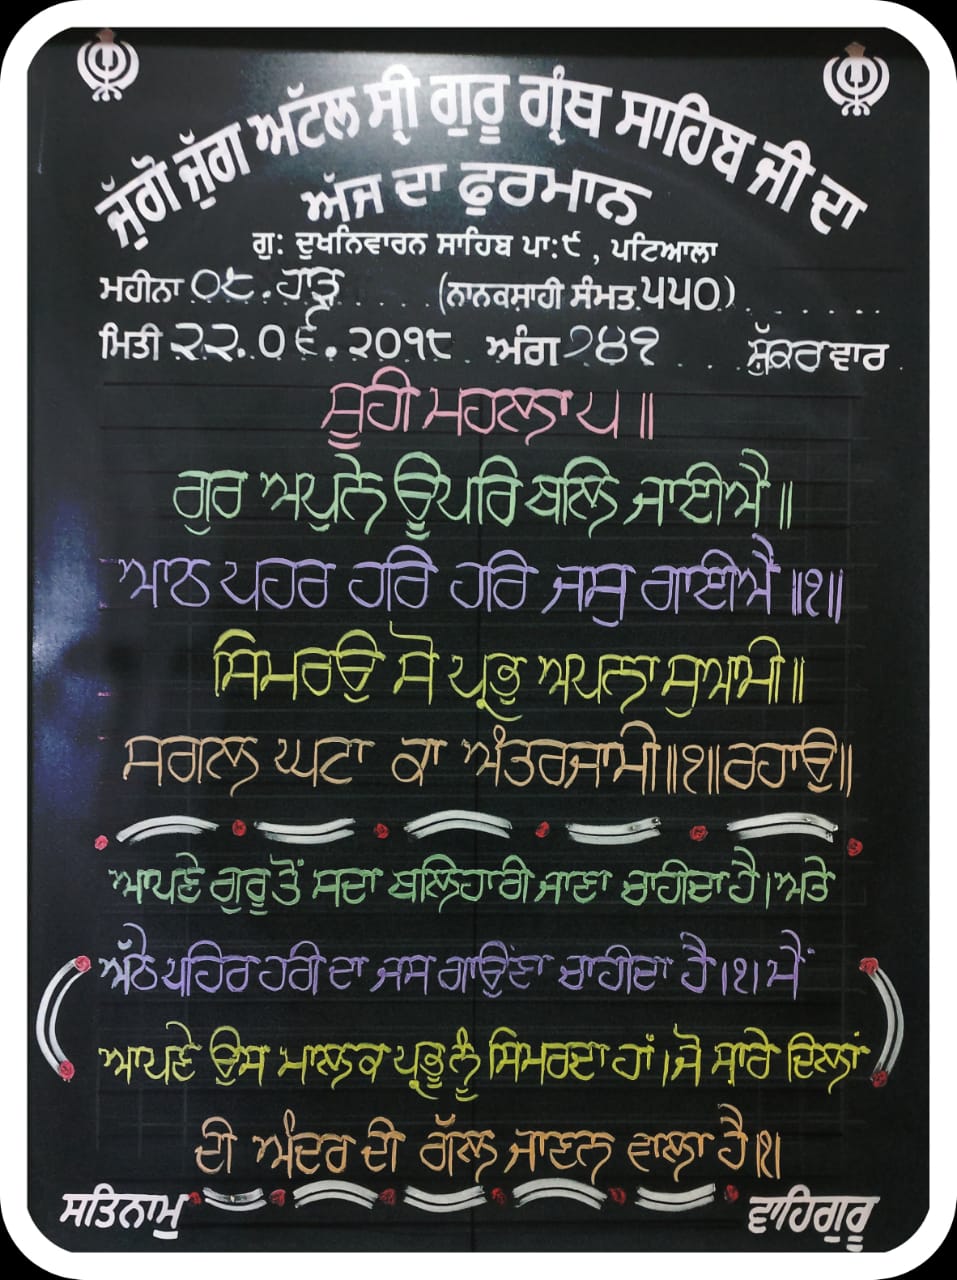 ਜੁੱਗੋ ਜੁੱਗ ਅਟੱਲ ਸ੍ਰੀ ਗੁਰੂ ਗ੍ਰੰਥ ਸਾਹਿਬ ਜੀ ਦਾ
ਅੱਜ ਦਾ ਫੁਰਮਾਨ
ਗੁ: ਦੁਖਨਿਵਾਰਨ ਸਾਹਿਬ ਪਾ:੯ , ਪਟਿਆਲਾ
ਮਹੀਨਾ ੦੮. ਹਾੜ੍ਹ (ਨਾਨਕਸ਼ਾਹੀ ਸੰਮਤ ੫੫੦)
ਮਿਤੀ ੨੨.੦੬.੨੦੧੮ ਅੰਗ ੭੪੧ ਸ਼ੁੱਕਰਵਾਰ
ਸੂਹੀ ਮਹਲਾ ੫ ॥
ਗੁਰ ਅਪੁਨੇ ਊਪਰਿ ਬਲਿ ਜਾਈਐ ॥
ਆਠ ਪਹਰ ਹਰਿ ਹਰਿ ਜਸੁ ਗਾਈਐ ॥੧॥
ਸਿਮਰਉ ਸੋ ਪ੍ਰਭੁ ਅਪਨਾ ਸੁਆਮੀ ॥
ਸਗਲ ਘਟਾ ਕਾ ਅੰਤਰਜਾਮੀ ॥੧॥ ਰਹਾਉ ॥
ਆਪਣੇ ਗੁਰੂ ਤੋਂ ਸਦਾ ਬਲਿਹਾਰੀ ਜਾਣਾ ਚਾਹੀਦਾ ਹੈ । ਅਤੇ
ਅੱਠੇ ਪਹਿਰ ਹਰੀ ਦਾ ਜਸ ਗਾਉਂਣਾ ਚਾਹੀਦਾ ਹੈ ।੧। ਮੈਂ
ਆਪਣੇ ਉਸ ਮਾਲਕ ਪ੍ਰਭੂ ਨੂੰ ਸਿਮਰਦਾ ਹਾਂ । ਜੋ ਸਾਰੇ ਦਿਲਾਂ
ਦੀ ਅੰਦਰ ਦੀ ਗੱਲ ਜਾਣਨ ਵਾਲਾ ਹੈ ।੧।
ਸਤਿਨਾਮੁ ਵਾਹਿਗੁਰੂ